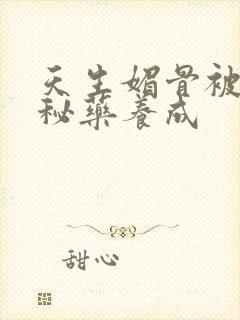 天生媚骨被
秘药养成
甜心